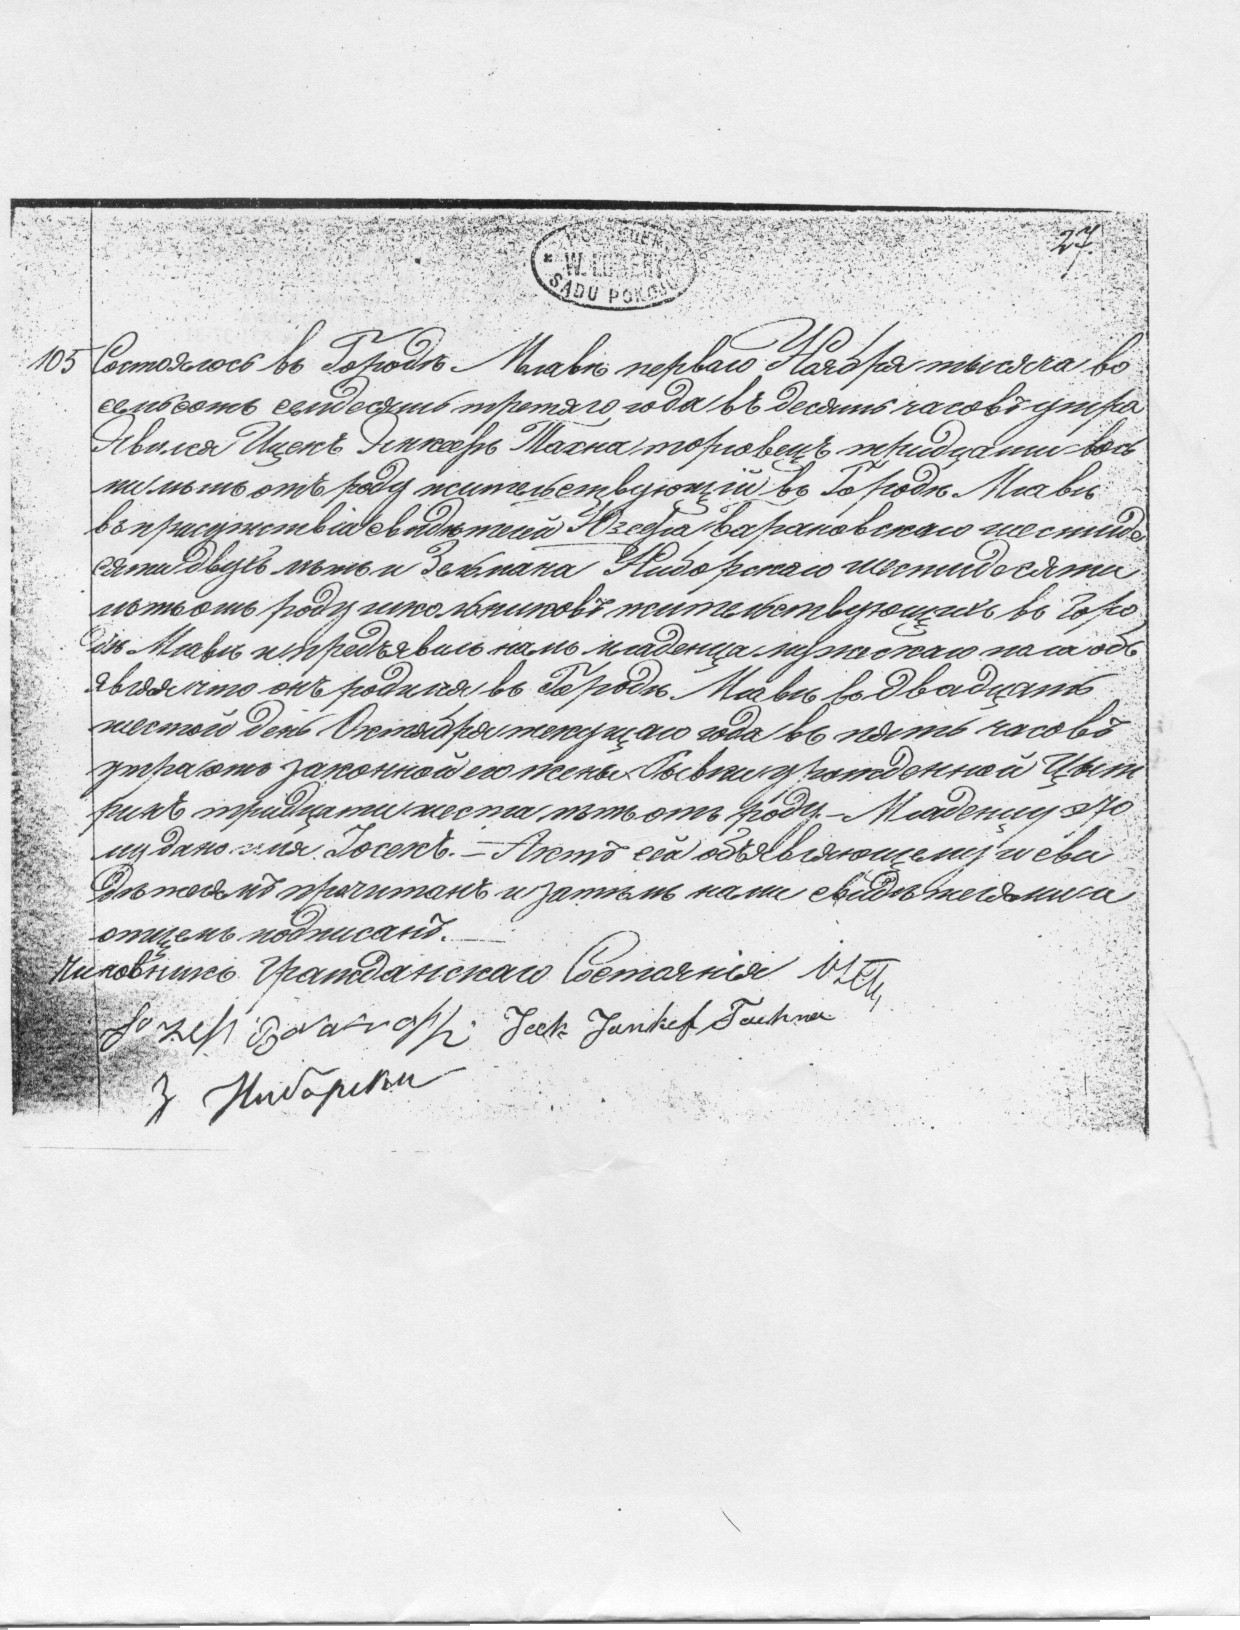 27
W. LUBERT
SĄDU POKOJU
105 Состоялось въ Городѣ Млавѣ перваго Ноября тысяча во
семьсотъ семдесятъ третяго года въ десять часовъ утра
Явился Ицекъ Янкель Тахна торговецъ тридцати вось
ми лѣтъ отъ роду жительствующій въ Городѣ Млавѣ
въ присутствіи свидѣтелей Юзефа Барановскаго шестиде
сяти двухъ лѣтъ и Зельмана Ниборскаго шестидесяти
лѣтъ отъ роду школьниковъ жительствующихъ въ Горо
дѣ Млавѣ и предъявилъ намъ младенца мужескаго пола объ
являя что онъ родился въ Городѣ Млавѣ въ двадцать
шестой день Октября текущаго года въ пять часовъ
утра отъ законной его жены урожденной Цыт
ринъ тридцати шести лѣтъ отъ роду. — Младенцу это
му дано имя Іосекъ. — Актъ сей объявляющему и сви
дѣтелямъ прочитанъ и затѣмъ нами свидѣтелями и
отцемъ подписанъ.
Чиновникъ Гражданскаго Состоянія
Jcek Jankef Tachna
З Ниборски